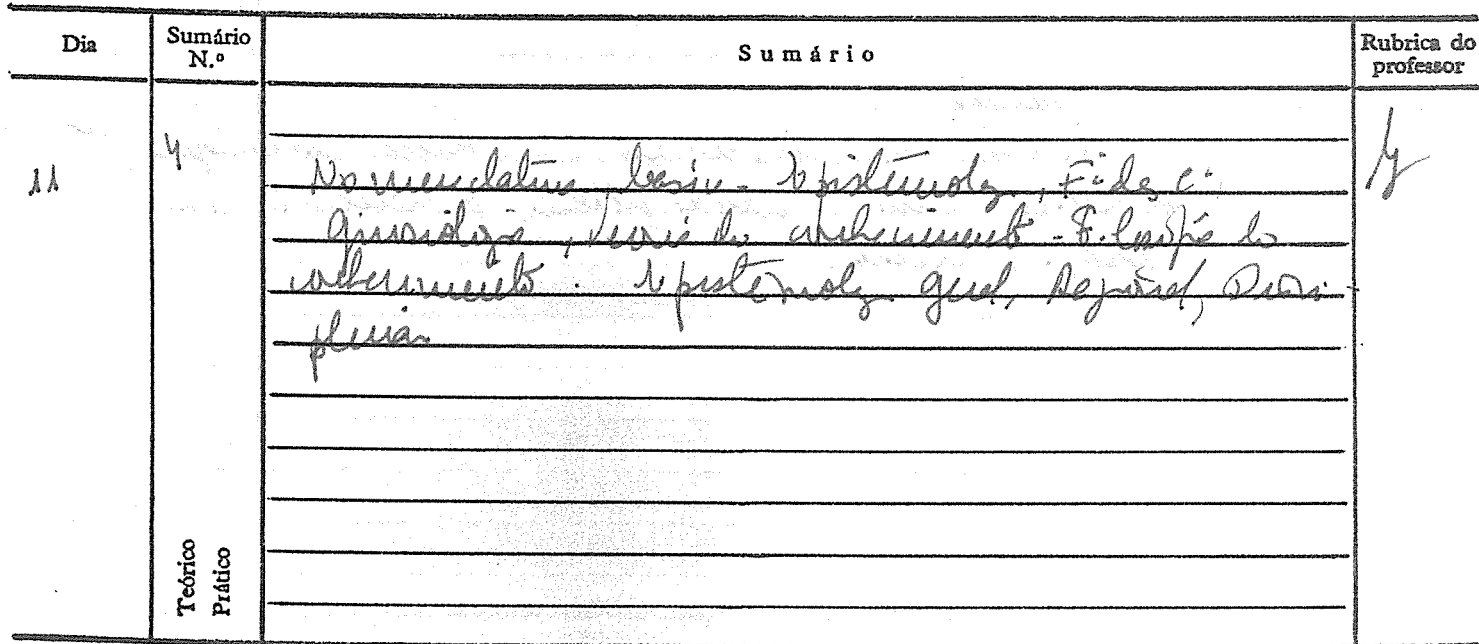 Dia
Sumário N.º
Sumário
Rubrica do professor
11
4
Nomenclatura básica - Epistemolog, F. das C.
Gnosiologia, teoria do conhecimento - Filosofia do
conhecimento. Epistemolog geral, Regional, Disci-
plinar
Teórico
Prático